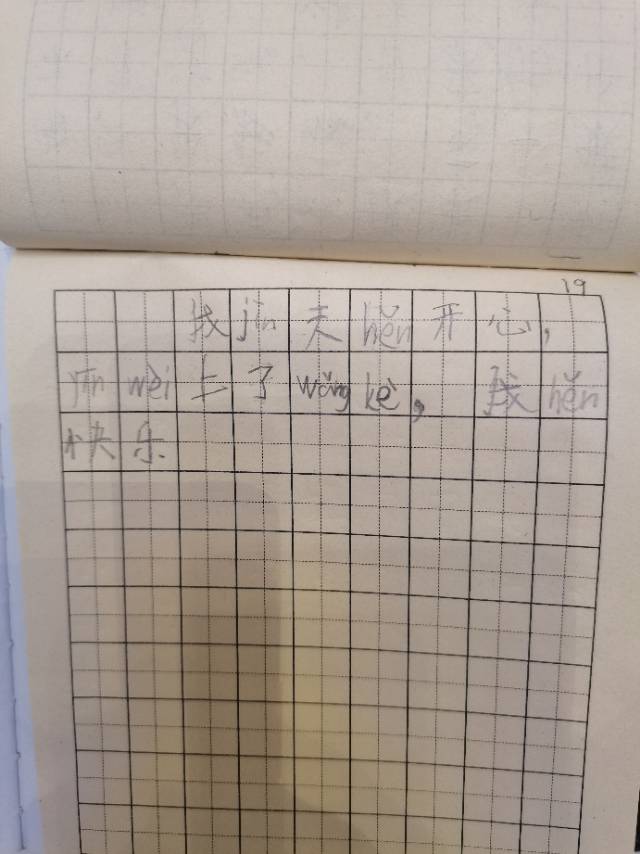 19
我jīn天hěn开心，
yīn wèi上了wǎng kè，我hěn
快乐